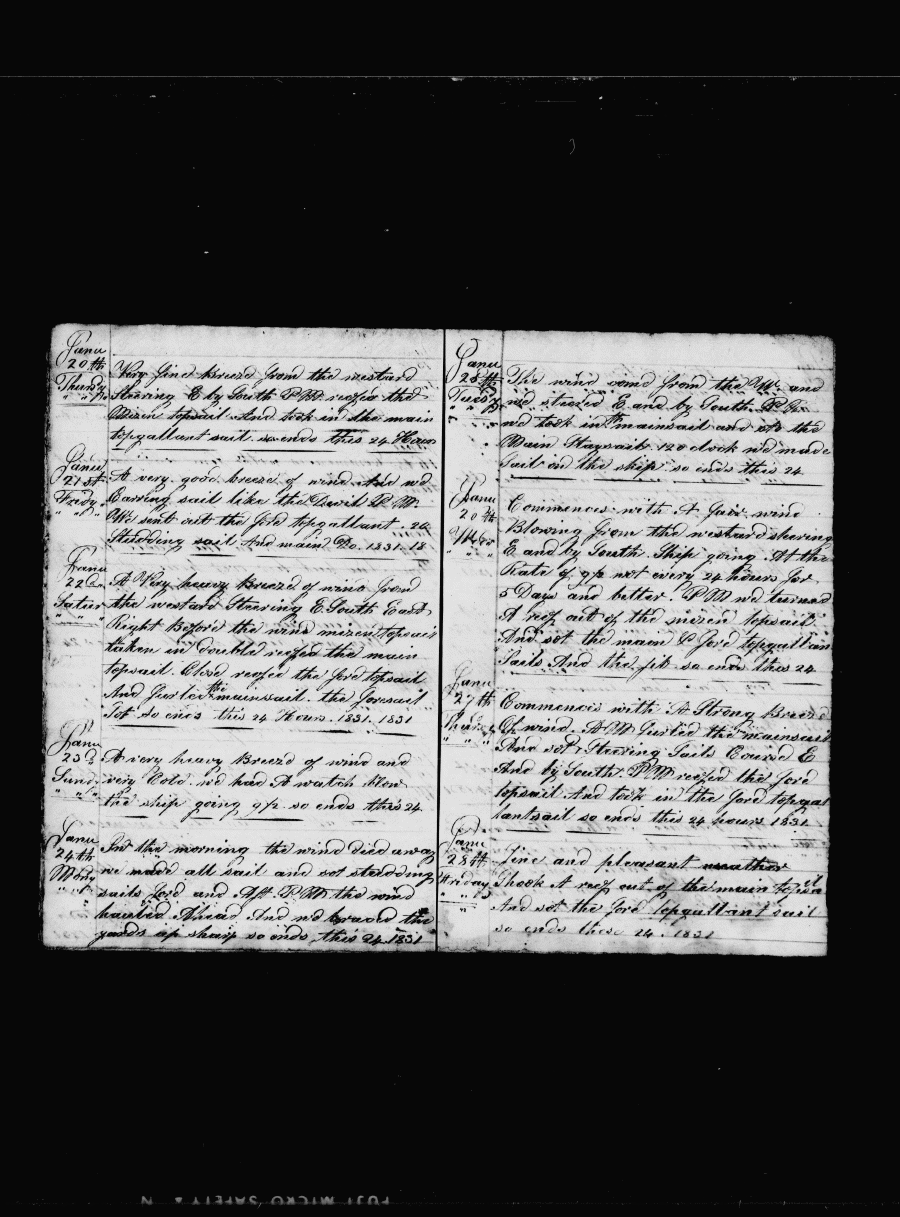 Janu
20 th
Thursdy
Very fine breeze from the westard
Stearing E by South P M reefed the
Mizen topsail And took in the main
topgallant sail so ends this 24 Hours
Janu
21 st
Fredy
A very good breeze of wind And we
Carring sail like the Devil P M
We sent out the fore topgallant
Studding sail And main Do. 1831. 18
Janu
22 d
Satur
A Very heavy Breeze of wind from
the westard Stearing E South East
Right Before the wind mizen topsail
taken in double reefed the main
topsail Close reefed the fore topsail
And Furled the mainsail the foresail
Sot so ends this 24 Hours. 1831. 1831
Janu
23 d
Sund
A very heavy Breeze of wind and
very Cold we had A watch blow
the ship going 9/2 so ends this 24
Janu
24 th
Mondy
In the morning the wind died away
we made all sail and sot studding
sails fore and Aft P M the wind
hauled Ahead And we braced the
yards up sharp so ends this 24. 1831
Janu
25 th
Tuesy
The wind come from the W. and
we steered E and by South P M
we took in the mainsail and sot the
Main Staysail 12 o clock we made
Sail on the ship so ends this 24
Janu
Commences with A fair wind
Blowing from the westard stearing
E and by South Ship going At the
Rate of 9/2 not every 24 hours for
5 Days and better. P M we turned
A reef out of the mizen topsail
And sot the main & fore topgallan
Sails And the jib so ends this 24
Janu
27 th
Commences with A Strong Breeze
Of wind. A M Furled the mainsail
And sot Stearing Sails Course E
And by South. P M reefed the fore
topsail And took in the fore topgal
lantsail so ends this 24 hours 1831
Janu
28 th
Friday
Fine and pleasant weather
Shook A reef out of the main topsail
And sot the fore topgallant sail
so ends these 24. 1831
FUJI MICRO SAFETY ▲ N